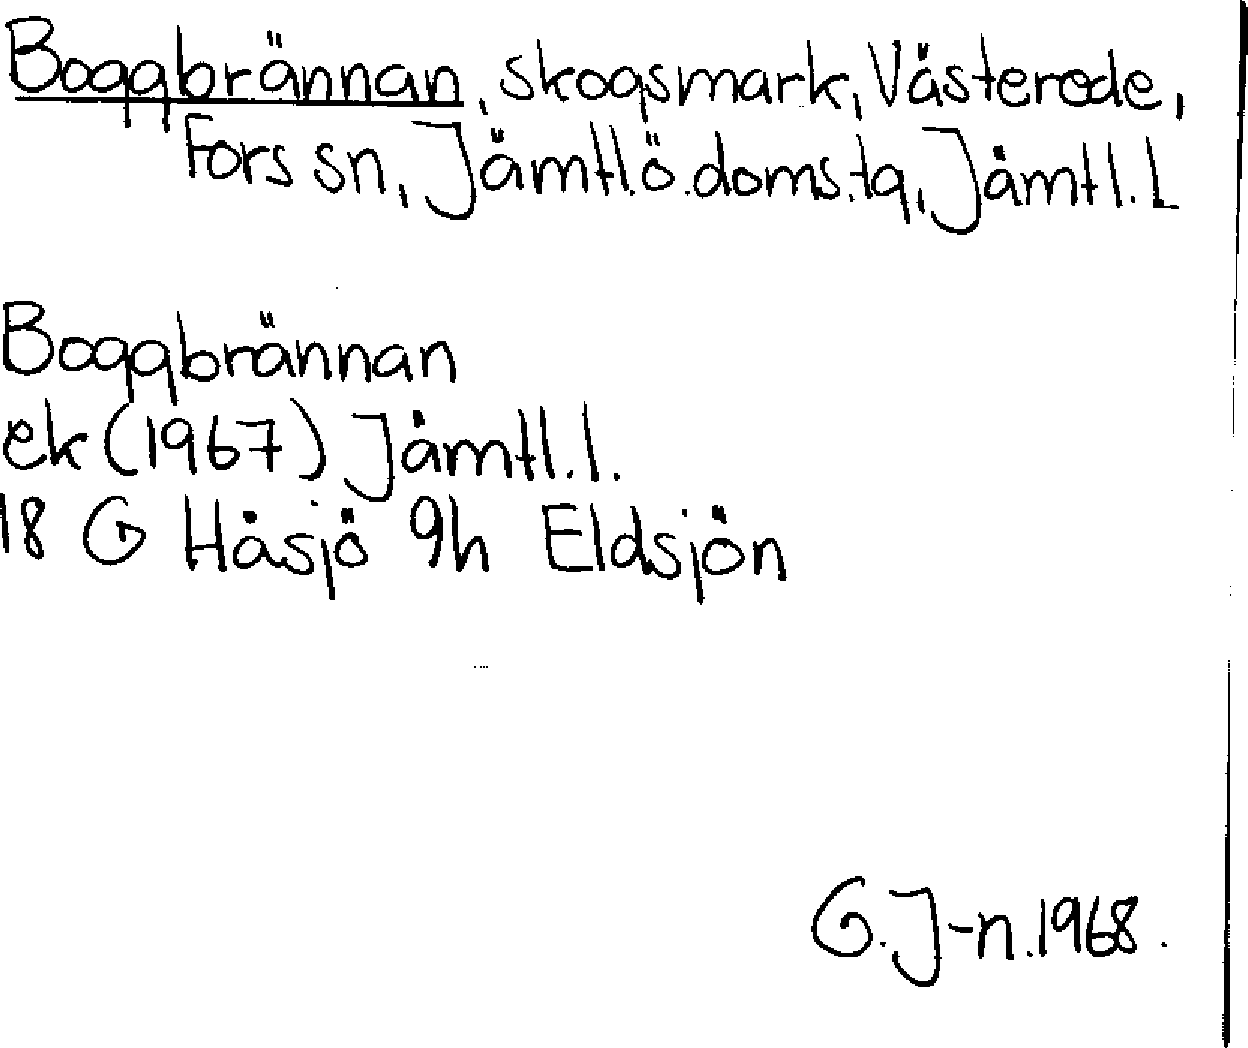 Boggbrännan, skogsmark, Västerede,
Fors sn, Jämtl.ö.doms.tg, Jämtl.L
Boggbrännan
ek (1967) Jämtl.l.
18 G Håsjö 9h Eldsjön
G.J-n.1968.